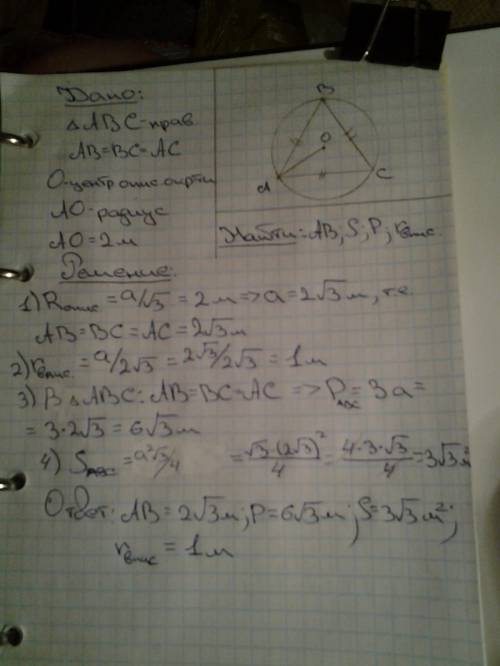 Дано:
△ABC-прав.
AB=BC=AC
O-центр опис. окр-ти
AO-радиус
AO=2м
B
O
A
C
Найти: AB, S, P, rвпис.
Решение:
1) Rопис = a/√3 = 2м => a = 2√3 м, т.е.
AB=BC=AC=2√3м
2) rвпис. = a/2√3 = 2√3/2√3 = 1м
3) В △ABC: AB=BC=AC => PABC = 3a =
= 3·2√3 = 6√3м
4) SABC = a²√3/4 = √3·(2√3)²/4 = 4·3·√3/4 = 3√3м²
Ответ: AB = 2√3м; P=6√3м; S=3√3м²;
rвпис = 1м